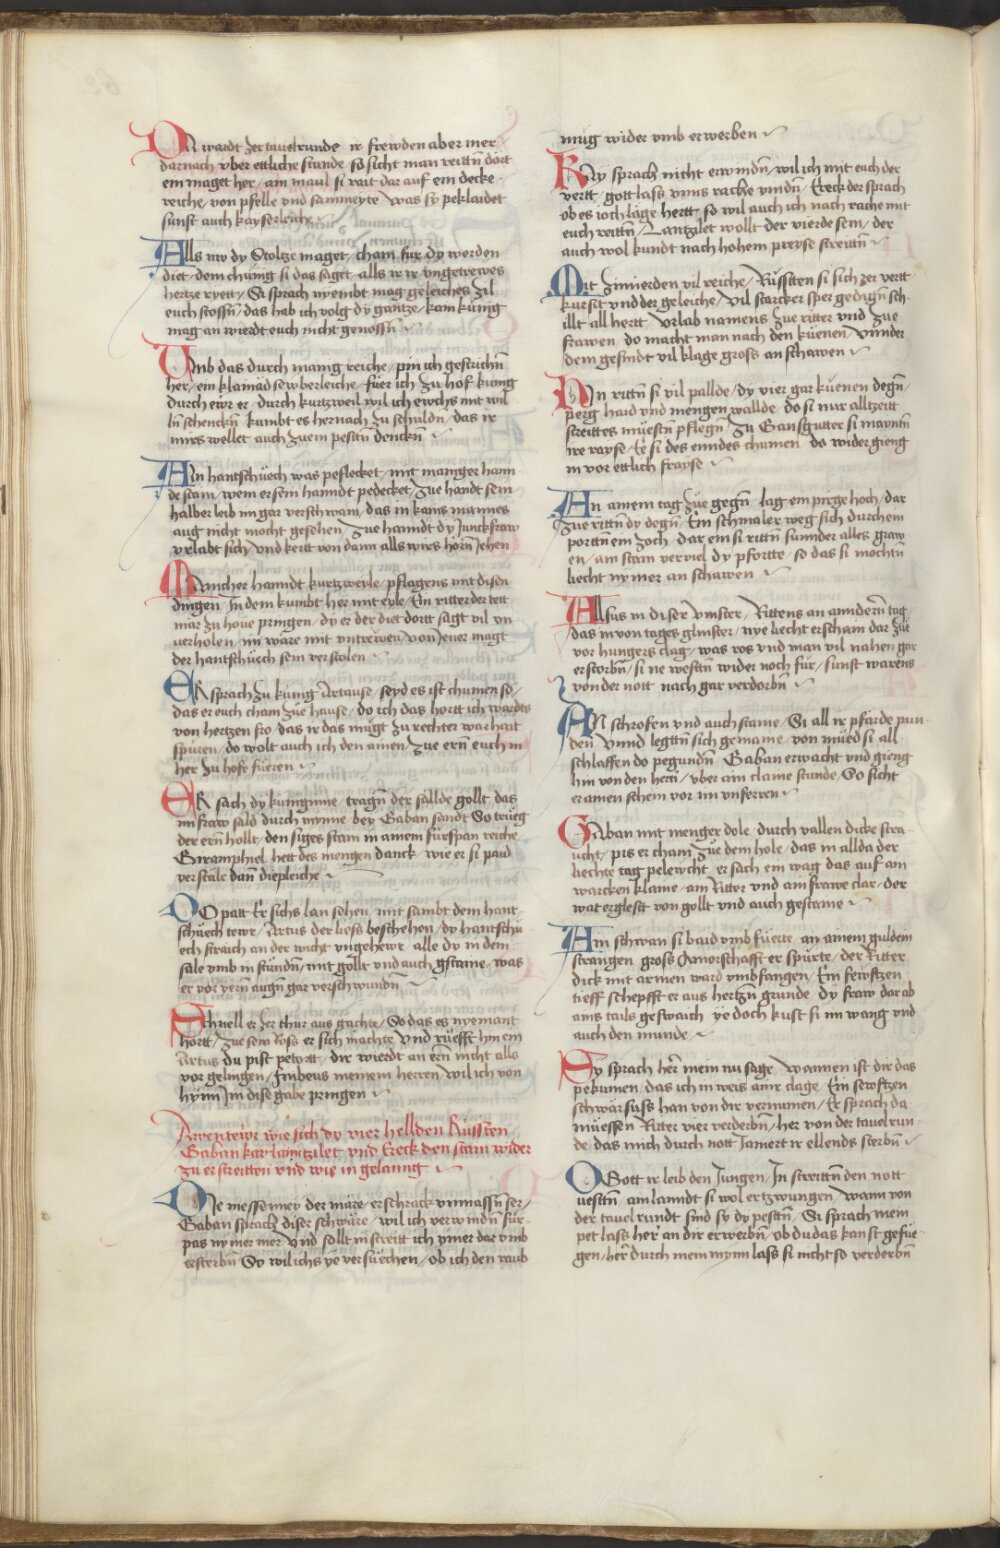 Da wardt zer tauelrunde ir frewden aber mer
darnach vber ettliche stunde so sicht man reittn dort
ein maget her am maul si rait dar auf ein decke
reiche von pfelle vnd sammeyte was sy peklaidet
sunst auch kayserleiche
Alls nw dy Stoltze maget cham für dy werden
diet dem chünig si das saget alls ir ir vngetrewes
hertze ryett Si sprach nyembt mag geleiches zil
euch stossn das hab ich volg dy gantze kain künig
mag an wierdt euch nicht genossn
Vnb das durch manig reiche pin ich gestrichn
her ein klainad sewberleiche füer ich zu hof künig
durch ewr er durch kurtzweil wil ich ewchs mit wil
ln schenckn kumbt es hernach zu schuldn das ir
mirs wellet auch zuem pestn denckn
Ain hantschüech was peflecket mit maniger hann
de stain wem er sein hanndt pedecket zue handt sein
halber leib im gar verschwain das in kains mannes
aug nicht mocht gesehen zue hanndt dy Junckfraw
vrlabt sich vnd kert von dann alls wirs hörn Jehen
Mancher hanndt kurtzweyle pflagens mit disen
dingen In dem kumbt her mit eyle Ein ritter der tett
mär zu houe pringen dy er der diet dortt sagt vil vn
uerholen im wäre mit vntrewen von Jener magt
der hantschüech sein verstolen
Er sprach zu künig Artause seyd es ist chumen so
das er euch cham züe hause do ich das hortt ich wardes
von hertzen fro das ir das mügt zu rechter warhait
spüren do wolt auch ich den ainen zue ern euch in
her zu hofe füeren
Er sach dy kuniginne tragn der sällde gollt das
im fraw säld durch mynne bey Gaban sandt So trüeg
der ern hollt den siges stain in ainem fürspan reiche
Giramphiel hett des mengen danck wie er si paid
verstäle dan diepleiche
Do patt Er sichs lan sehen mit sambt dem hant
schüech tewr Artus der liess beschehen dy hantschü
ech straich an der wicht vngehewr alle dy in dem
sale vmb in stündn mit gollt vnd auch gstaine was
er vor yern augn gar verschwundn
Schnell er zer thur aus gachte So das es nyemant
hortt zue sein Ross er sich machte vnd rüefft hin ein
Artus du pist petortt dir wierdt an ern nicht alls
vor gelingen Fimbeus meinem herren wil ich von
hynn Im dise gabe pringen
Awentewr wie sich dy vier hellden Rüssten
Gaban kay lantzilet vnd Ereck den stain wider
zu erstreitten vnd wie in gelanng
Die messenney der märe erschrack vnmassn ser
Gaban sprach diser schwäre wil ich verwindn für
pas nymer mer vnd sollt in streitt ich ymer dar vmb
ersterbn So wil ichs ye versüechen ob ich den raub
müg wider vmb erwerben
Kay sprach nicht erwindn wil ich mit euch der
vertt gott lass vnns rache vindn Ereck der sprach
ob es ioch läge hertt so wil auch ich nach rache mit
euch reittn Lantzilet wollt der vierde sein der
auch wol kundt nach hohem preyse streittn
Mit zimierden vil reiche Rüssten si sich zer vertt
kursit vnd der geleiche vil starcker sper gedign sch
illt all hertt vrlab namens zue ritter vnd zue
frawen do macht man nach den küenen vnnder
dem gesindt vil klage gross anschawen
Hin rittn si vil pallde dy vier gar küenen degn
perg haid vnd mengen wallde do si nur alltzeitt
streittes müestn pflegn zu Gansgutter si mayntn
ire rayse Ee si des enndes chumen do wider gieng
in vor ettlich frayse
An ainem tag züe gegn lag ein pirge hoch dar
zue rittn dy degn Ein schmaler weg sich durch ein
porttn ein zoch dar ein si rittn sunnder alles graw
en ain stain verviel dy pfortte so das si mochtn
liecht nymer an schawen
Allsus in diser vinster Rittens an anndern tag
das in von tages glinster nye liecht erschain dar züe
vor hungers clag was ros vnd man vil nahen gar
erstorbn si ne westn wider noch für sunst warens
von der nott nach gar verdorbn
An schrofen vnd auch staine Si all ir pfärde pun
den vnnd legttn sich gemaine von müed si all
schlaffen do pegundn Gaban erwacht vnd gieng
hin von den herrn vber ain claine stunde So sicht
er ainen schein vor im vnferren
Gaban mit menger dole durch vallen dicke stra
ucht pis er cham zue dem hole das in allda der
liechte tag pelewcht er sach ein wag das auf ain
warcken klaine ain Ritter vnd ain frawe clar der
wat erglesst von gollt vnd auch gestaine
Ain schwan si baid vmb füerte an ainem guldein
strangen gross Amorschafft er spürte der Ritter
dick mit armen ward vmbfangen Ein sewfftzen
tieff schepfft er aus hertzn grunde dy fraw dar ab
ains tails geswaich ye doch kust si im wang vnd
auch den munde
Sy sprach her mein nu sage wannen ist dir das
pekumen das ich in weis ainr clage Ein sewftzen
schwär suss han von dir vernumen Er sprach da
müessen Ritter vier verderbn her von der tauelrun
de das mich durch nott Jamert ir ellends sterbn
O Gott ir leib den Jungen In streittn den nott
uestn ain lanndt si wol ertzwungen wann von
der tauelrundt sind sy dy pestn Si sprach mein
pet lass her an dir erwerbn ob du das kanst gefüe
gen her durch mein mynn lass si nicht so verderbn